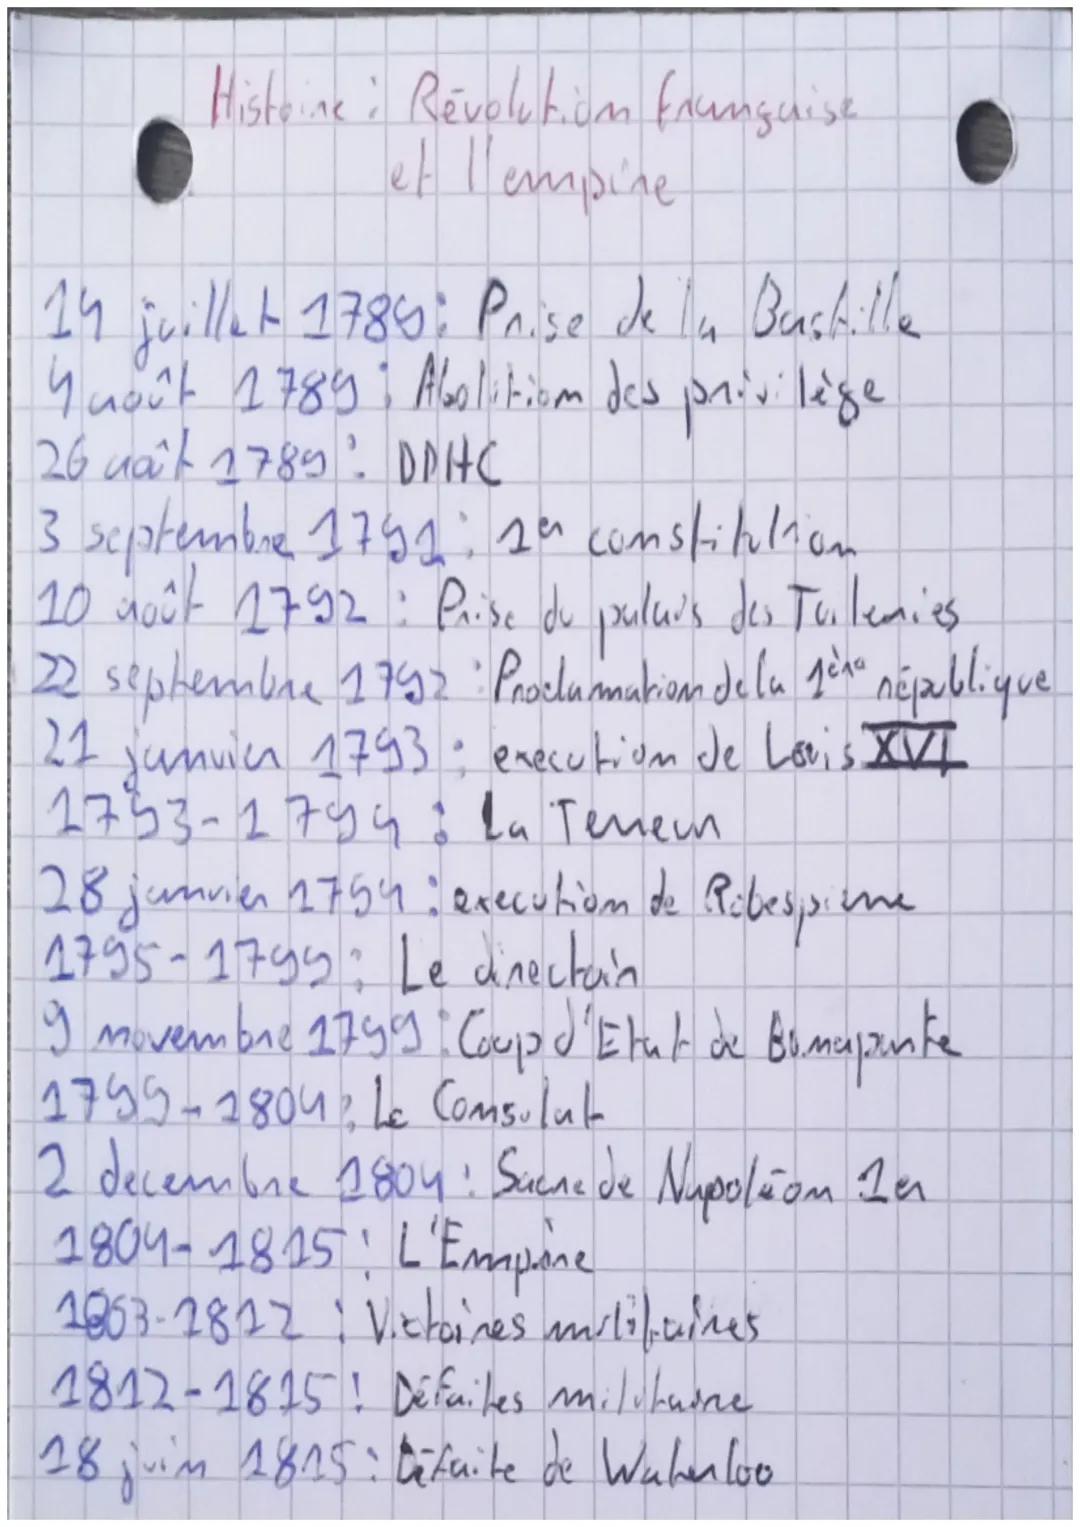 Histoire : Révolution française
et l'empire
14 juillet 1789 : Prise de la Bastille
4 août 1789 : Abolition des privilège
26 août 1789 : DDHC
3 septembre 1791 : 1er constitution
10 août 1792 : Prise du palais des Tuileries
22 septembre 1792 : Proclamation de la 1ère république
21 janvier 1793 : execution de Louis XVI
1793-1794 : La Terreur
28 janvier 1794 : execution de Robespierre
1795-1799 : Le directoir
9 novembre 1799 : Coup d'Etat de Bonaparte
1799-1804 : Le Consulat
2 decembre 1804 : Sacre de Napoléon 1er
1804-1815 : L'Empire
1803-1812 : Victoires militaires
1812-1815 : Défaites militaire
18 juin 1815 : Défaite de Waterloo